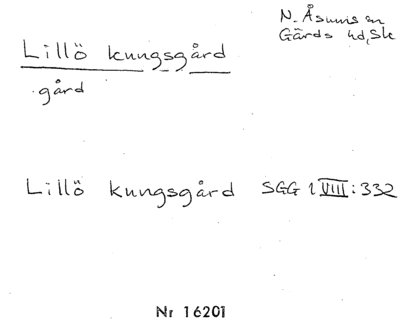 N. Åsums sn
Gärds hd, Sk
Lillö kungsgård
gård
Lillö kungsgård SGG 1 VIII:332
Nr 16201